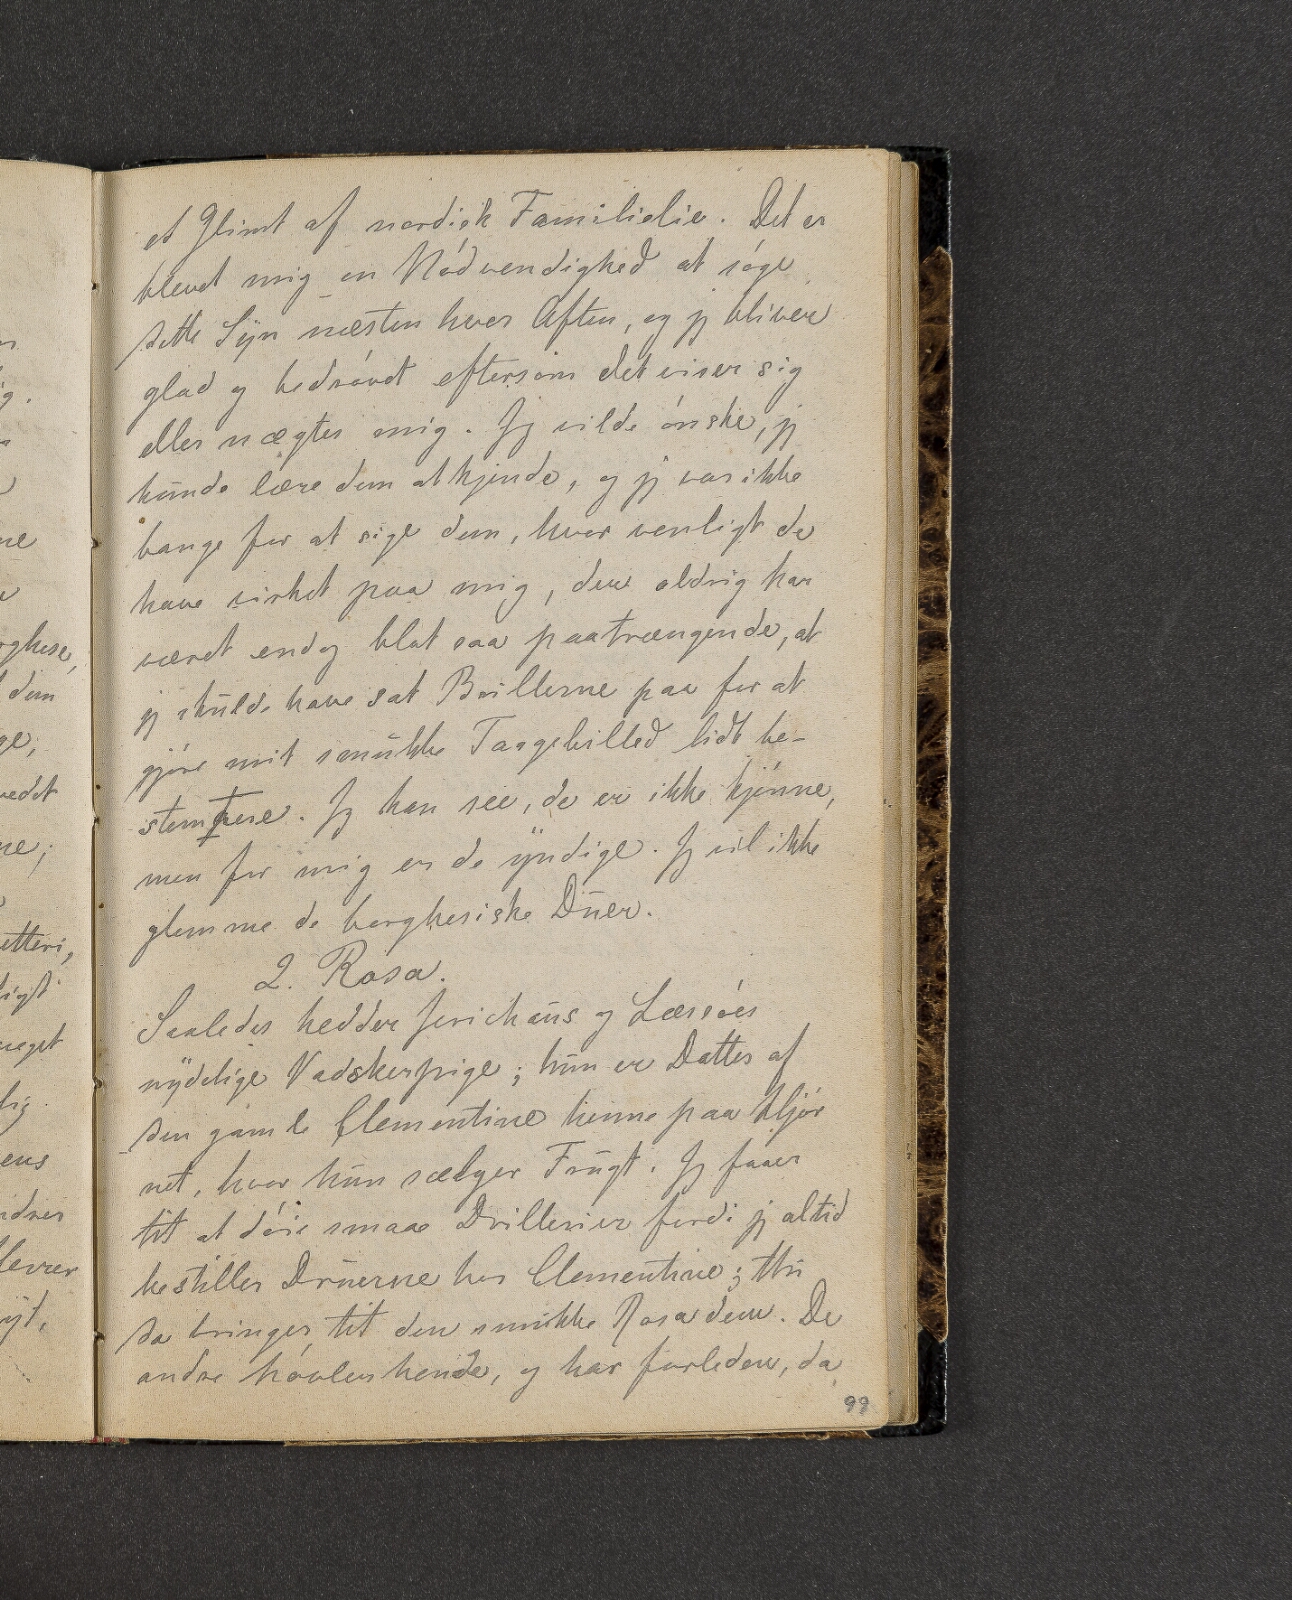 et Glimt af nordisk Familielie. Det er
blevet mig en Nødvendighed at søge
dette Syn næsten hver Aften, og jeg bliver
glad og bedrøvet eftersom det viser sig
eller nægtes mig. Jeg vilde ønske, jeg
kunde lære dem at kjende, og jeg var ikke
bange for at sige dem, hvor venligt de
have virket paa mig, der aldrig har
været endog blot saa paatrængende, at
jeg skulde have sat Brillerne paa for at
gjøre mit smukke Taagebilled lidt be-
stemtere. Jeg kan see, de er ikke kjønne,
men for mig er de yndige. Jeg vil ikke
glemme de borghesiske Duer.
2. Rosa.
Saaledes hedder Jerichaus og Læssøes
nydelige Vadskerpige; hun er Datter af
den gamle Clementine henne paa Hjør
net, hvor hun sælger Frugt. Jeg faaer
tit at døie smaa Drillerier fordi jeg altid
bestiller Druerne hos Clementine; thi
da bringer tit den smukke Rosa dem. De
andre høvler hende, og har forleden, da
99
ne
rghese,
dem
ge,
vedet
ne;
etteri,
meget
lig.
ens